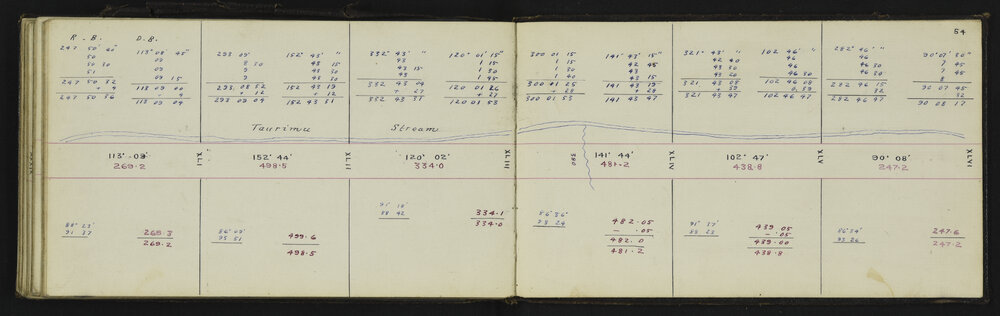 64
R.B. D.B.
247 50' 40" 113° 08' 45"
50 09
50 30 09
51 09 15
247 50 32 113 09 00
+ 4 - 9
247 50 36 113 09 09
293 09' 152° 43' "
8 30 43 15
9 43 30
9 43 30
293 08 52 152 43 19
+ 12 + 12
293 09 04 152 43 31
332° 43' " 120° 01' 15"
43 1 15
43 15 1 30
43 1 45
332 43 04 120 01 26
+ 27 + 27
332 43 31 120 01 53
300 01 15 141° 43' 15"
01 15 42 45
1 30 43
1 40 43 15
300 01 25 141 43
+ 28 + 28
300 01 53 141 43 47
321° 43' " 102° 46' "
42 40 46
43 46
43 20 46 30
321 43 08 102 46 08
+ 39 0.39
321 43 47 102 46 47
282° 46' " 90° 07' 30"
46 7 45
46 30 7 45
46 7 45
282 46 15 90 07 45
32 32
282 46 47 90 08 17
Taurimu Stream
113° 09' XLI 152° 44' XLII 120° 02' XLIII 580 141° 44' XLIV 102° 47' XLV 90° 08' XLVI
269.2 498.5 334.0 481.2 438.8 247.2
88° 23' 269.3
91 37 269.2
86° 09' 499.6
93 51 498.5
91° 18' 334.1
88 42 334.0
86° 36' 482.05
93 24 - .05
482.0
481.2
91° 37' 439.05
88 23 - .05
439.00
438.8
86° 34' 247.6
93 26 247.2